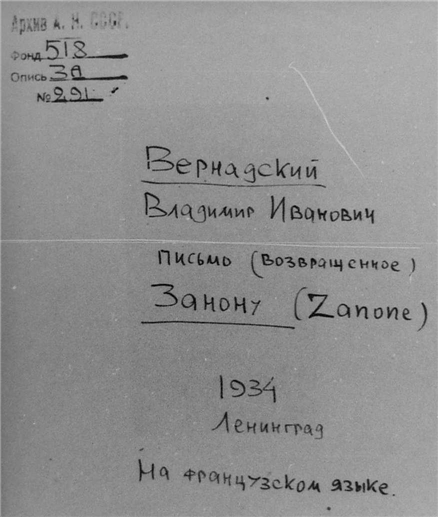 Архив А. Н. СССР.
Фонд 518
Опись 3А
№ 291
Вернадский
Владимир Иванович
письмо (возвращенное)
Занону (Zanone)
1934
Ленинград
На французском языке.